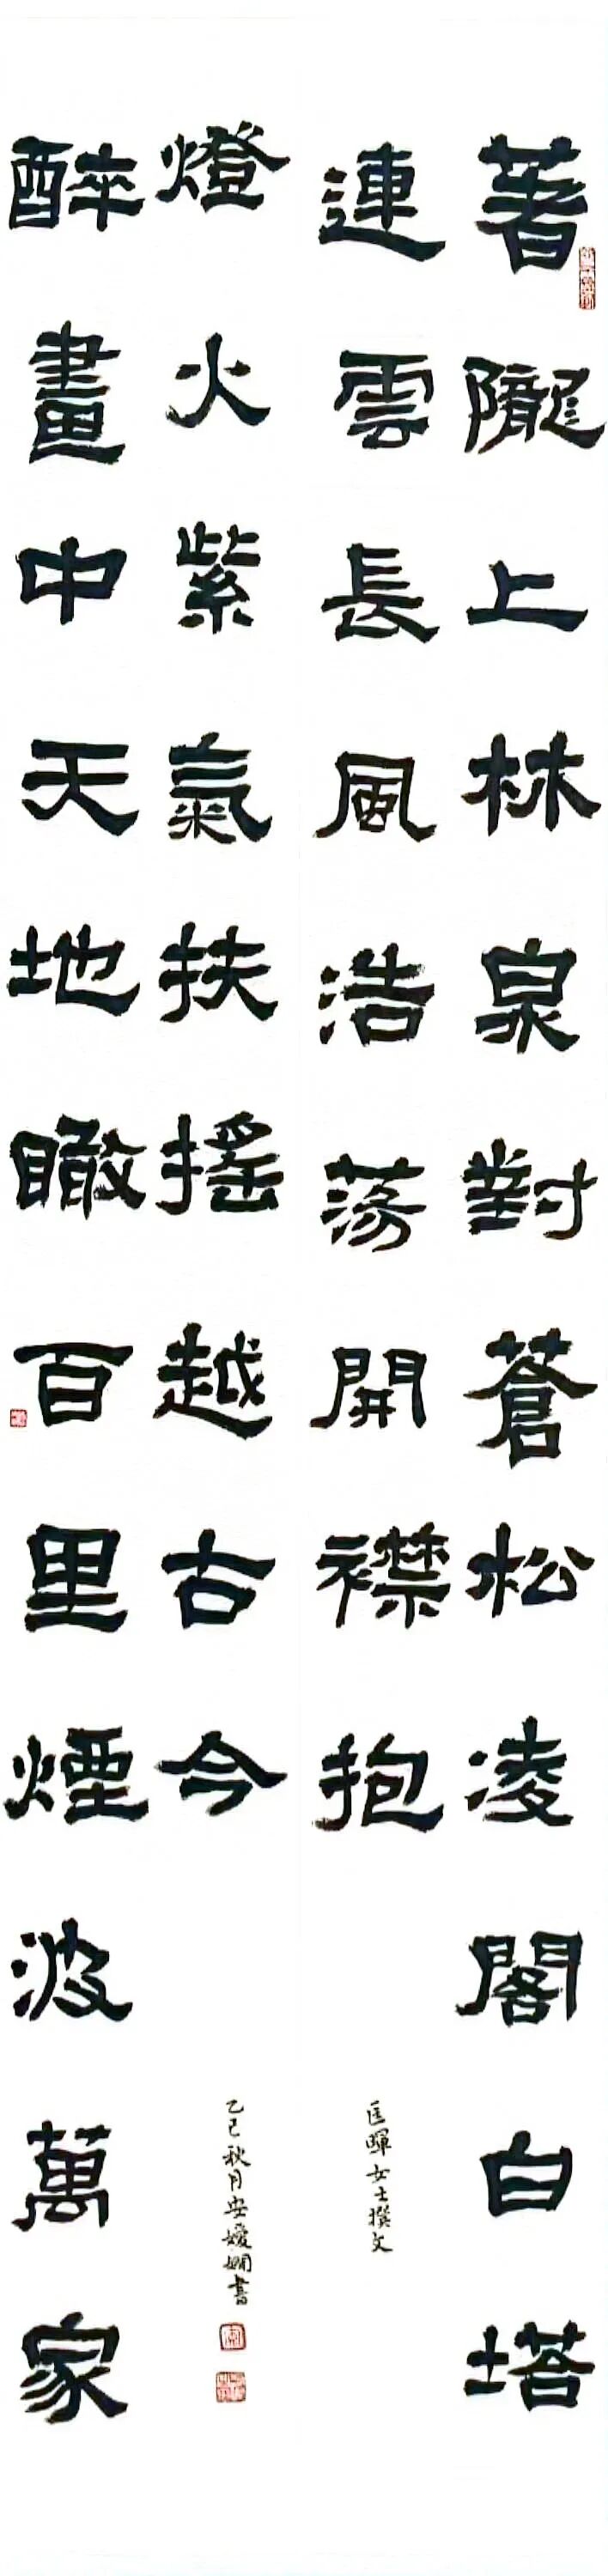 著隴上林泉對蒼松凌閣白塔
連雲長風浩蕩開襟抱
匡暉女士撰文
醉畫中天地瞰百里煙波萬家
燈火紫氣扶搖越古今
乙巳秋月安嬡嫻書